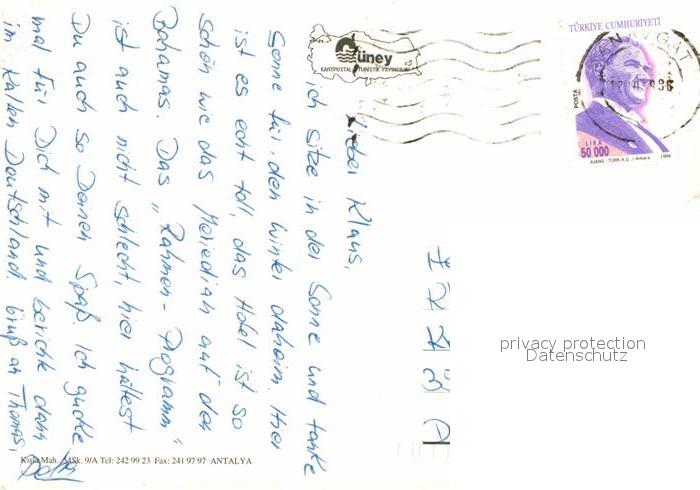 Lieber Klaus,
ich sitze in der Sonne und tanke
Sonne für den Winter daheim. Hier
ist es echt toll, das Hotel ist so
schön wie das Meriedian auf den
Bahamas. Das „Rahmen-Programm"
ist auch nicht schlecht, hier hättest
Du auch so Deinen Spaß. Ich gucke
mal für Dich mit und berichte dann
im kalten Deutschland. Gruß an Thomas,
güney
KARTPOSTAL TURİSTİK YAYINCILIK
TÜRKİYE CUMHURİYETİ
POSTA
LİRA
50 000
AJANS - TÜRK A.Ş. / Ankara
MANAVGAT
privacy protection
Datenschutz
Kışla Mah. Sk. 9/A Tel: 242 99 23 Fax: 241 97 97 ANTALYA